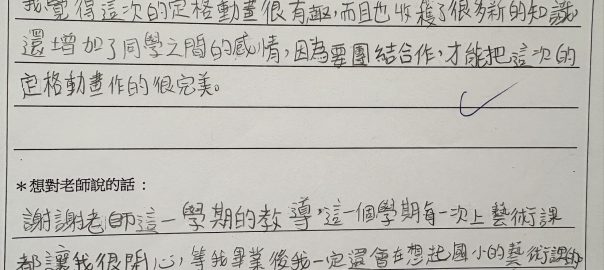 我覺得這次的定格動畫很有趣,而且也收穫了很多新的知識,
還增加了同學之間的感情,因為要團結合作,才能把這次的
定格動畫作的很完美。
*想對老師說的話:
謝謝老師這一學期的教導,這一個學期每一次上藝術課
都讓我很開心,等我畢業後我一定還會在想起國小的藝術課的